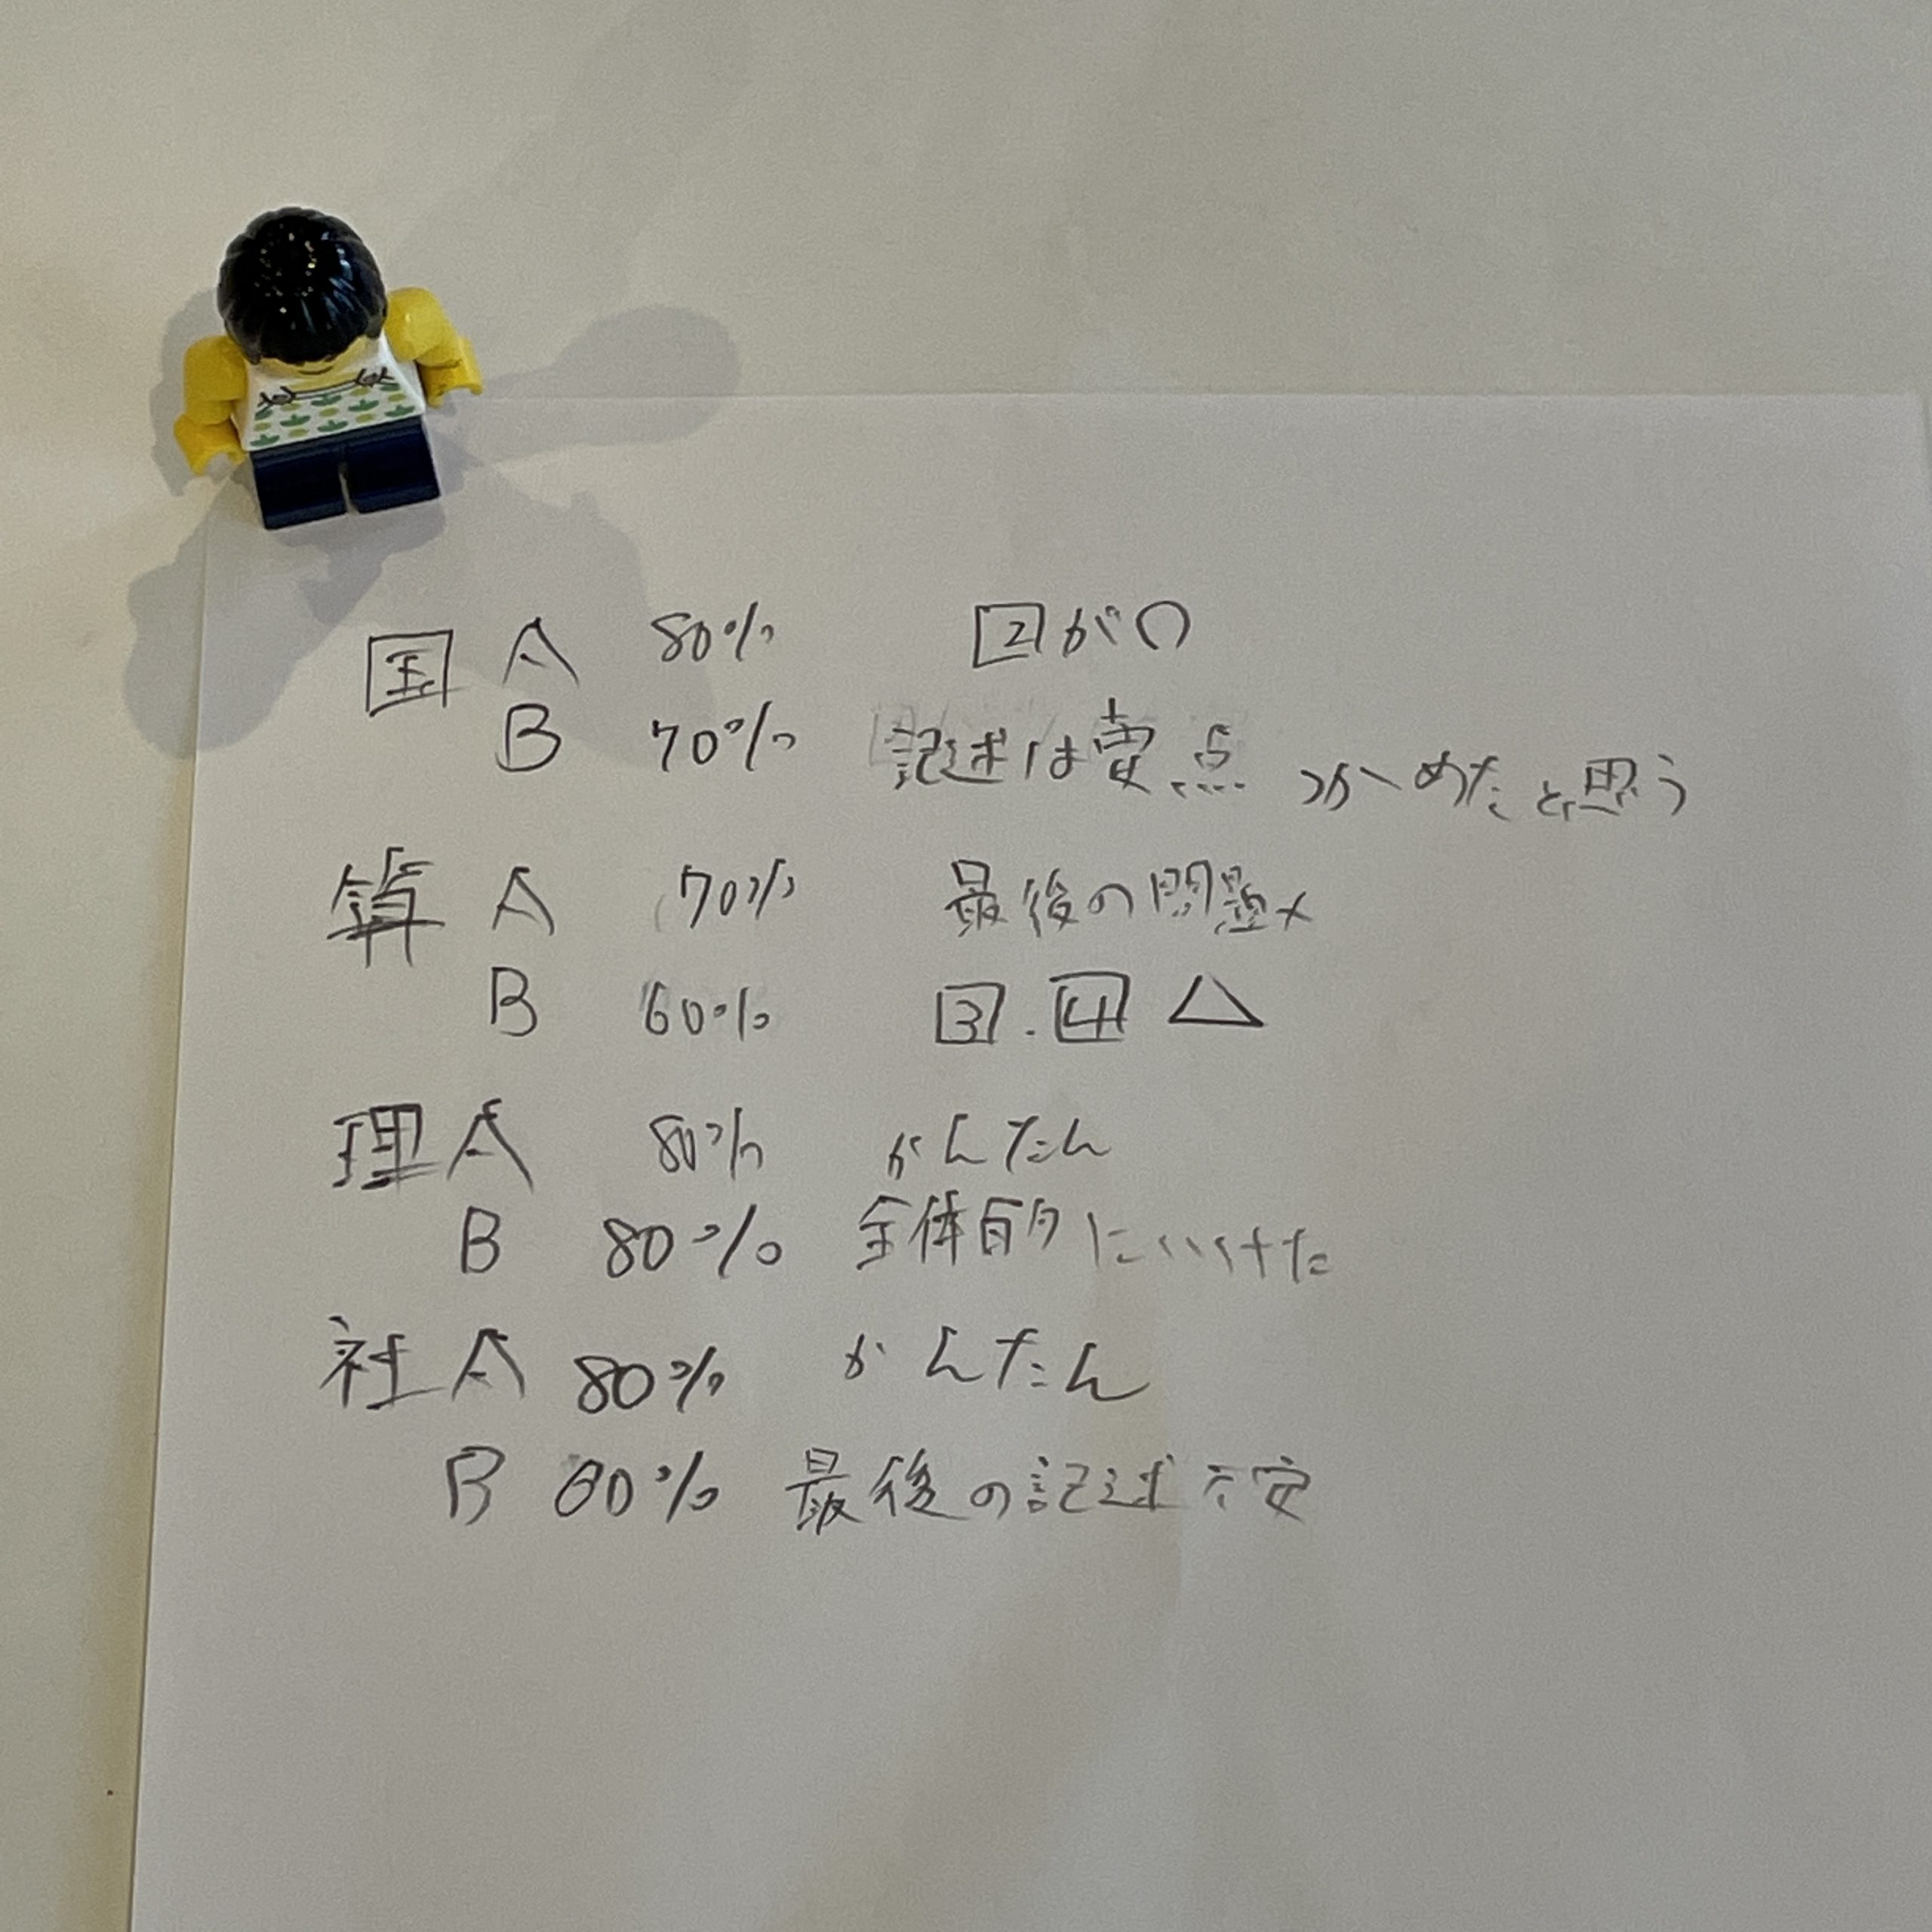 国 A 80% 2が〇
B 70% 記述は要点 つかめたと思う
算 A 70% 最後の問題×
B 60% 3.4 △
理 A 80% かんたん
B 80% 全体的にいけた
社 A 80% かんたん
B 60% 最後の記述不安